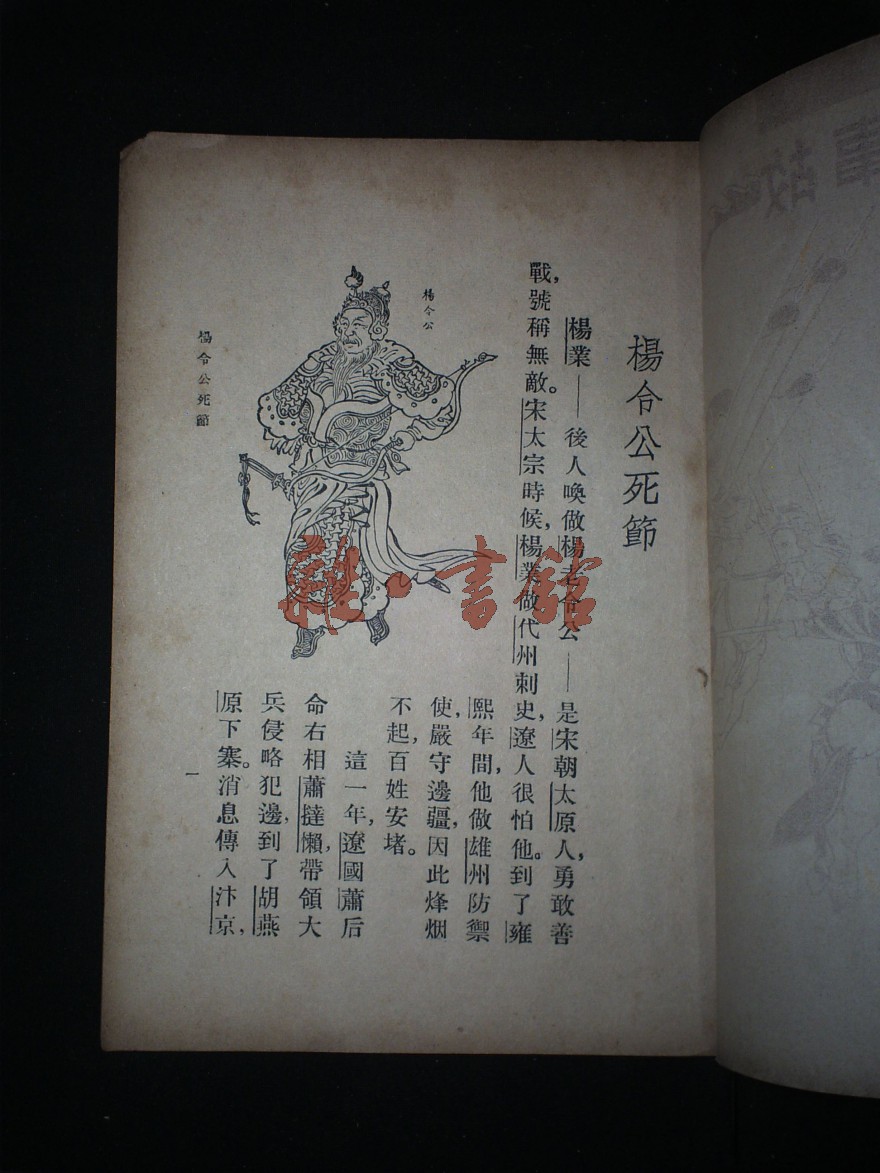 楊令公死節
楊業——後人喚做楊老令公——是宋朝太原人，勇敢善
戰，號稱無敵。宋太宗時候，楊業做代州刺史，遼人很怕他。到了雍
熙年間，他做雄州防禦
使，嚴守邊疆，因此烽烟
不起，百姓安堵。
這一年，遼國蕭后
命右相蕭撻懶，帶領大
兵侵略犯邊，到了胡燕
原下寨。消息傳入汴京，
楊令公
楊令公死節
一
雜·書館
事故